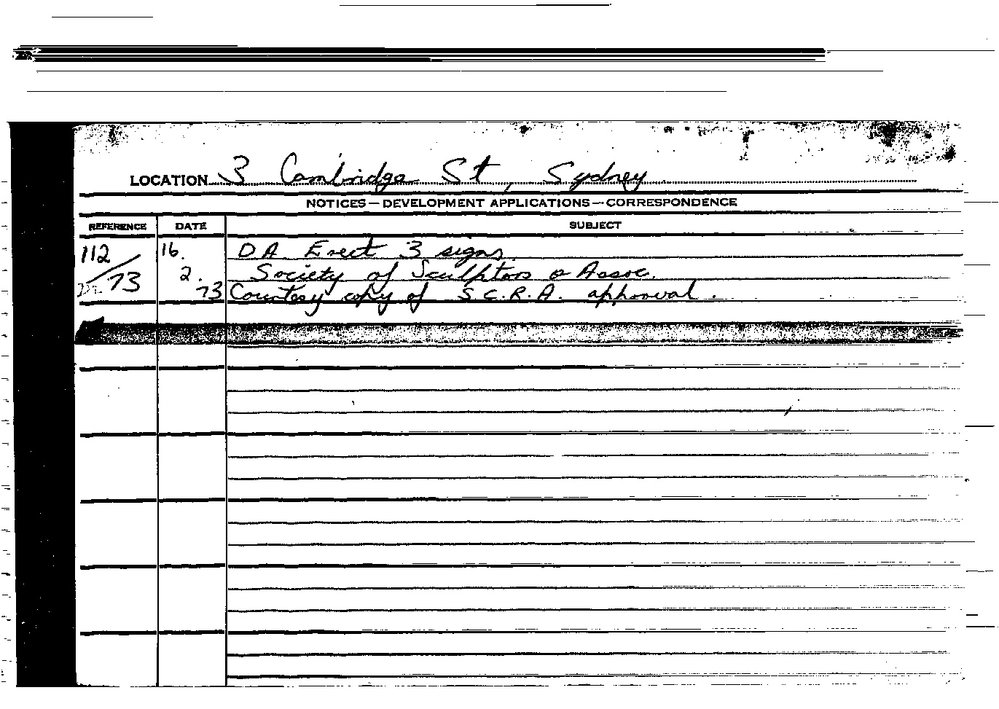 LOCATION 3 Cambridge St, Sydney
NOTICES — DEVELOPMENT APPLICATIONS — CORRESPONDENCE
REFERENCE DATE SUBJECT
112 16. D.A. Erect 3 signs
/73 2. Society of Sculptors & Assoc.
73 Courtesy copy of S.C.R.A. approval.